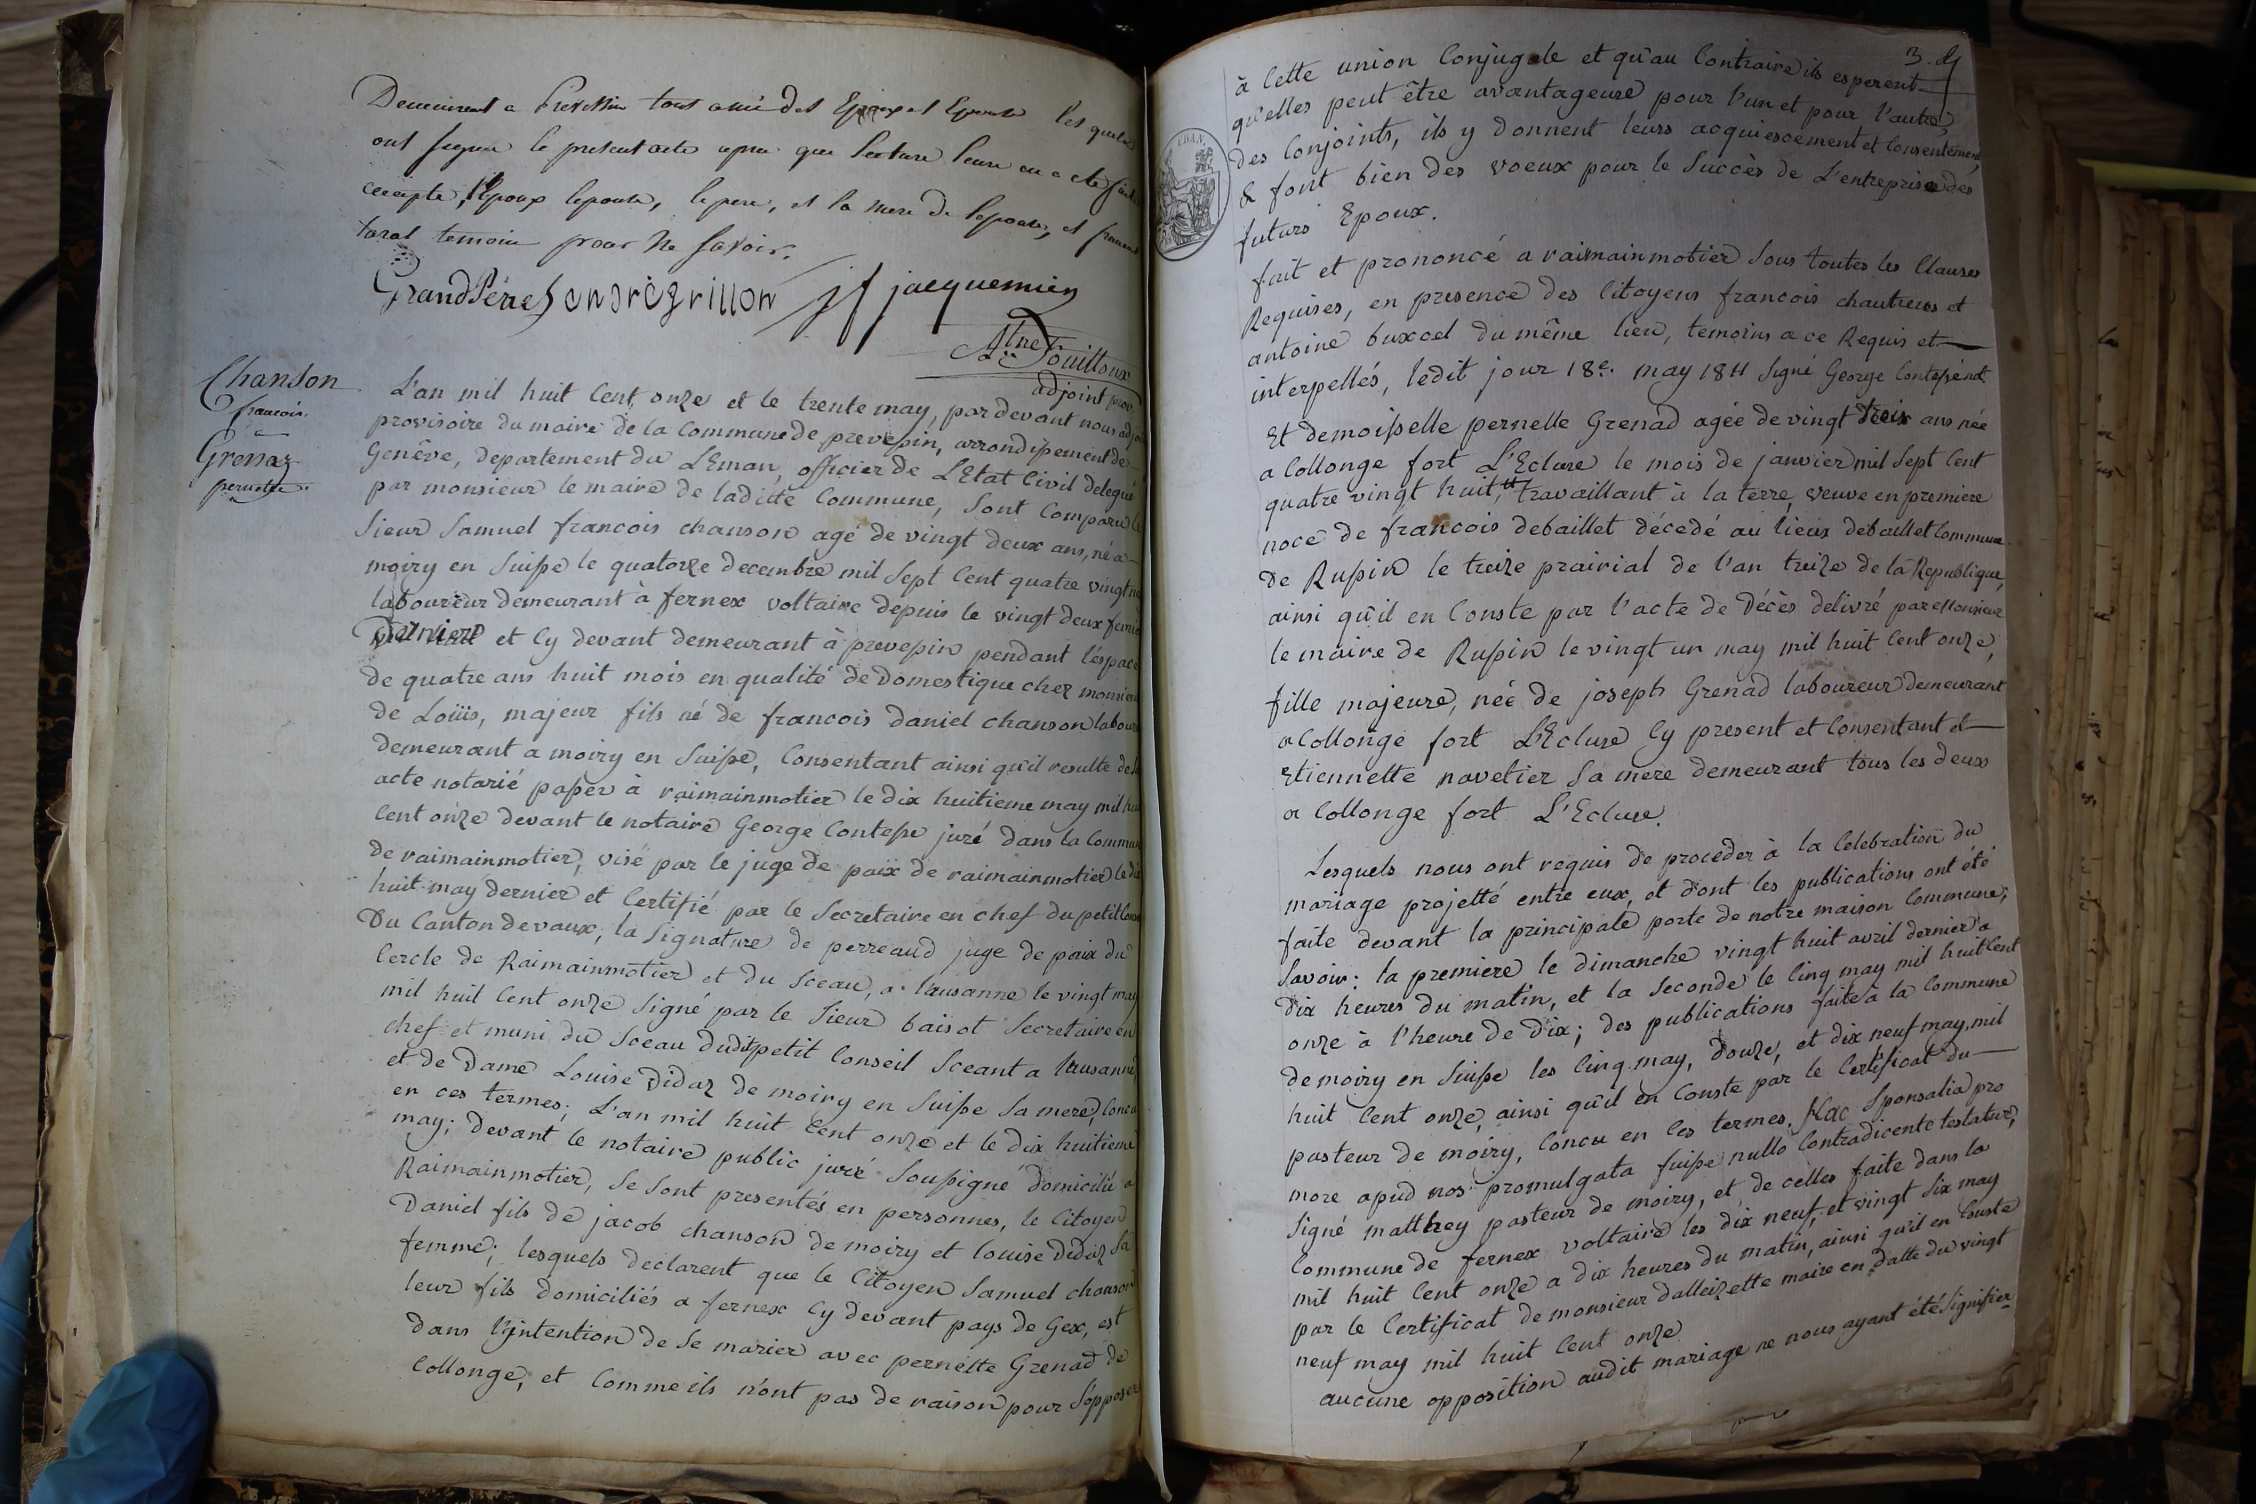 Demeurent a Prevessin tous amis des Epoux et Epouse les quels
ont signé le present acte apres que lecture leure en a été faite
excepté, l'Epoux lepouse, le pere, et la mere de lepouse, et francois
taral temoin pour ne savoir.
Grand Père andré grillon jf jacquemier
Ate Fouilloux
adjoint prov.
Chanson
francois
Grenaz
pernette
L'an mil huit Cent onze et le trente may, par devant nous adjoint
provisoire du maire de la Commune de prevessin, arrondissement de
Genêve, departement du Léman, officier de L'Etat Civil delegué
par monsieur le maire de laditte Commune, sont Comparu le
Sieur Samuel francois chanson agé de vingt deux ans, né a
moiry en Suisse le quatorze decembre mil Sept Cent quatre vingt
laboureur demeurant à fernex voltaire depuis le vingt deux fevrier
Dernier et Cy devant demeurant à prevessin pendant l'éspace
de quatre ans huit mois en qualité de Domestique chez monsieur
de Loüis, majeur fils né de francois daniel chanson laboureur
demeurant a moiry en Suisse, Consentant ainsi qu'il resulte de
acte notarié passé à raimainmotier le dix huitieme may mil huit
Cent onze devant le notaire George Contesse juré dans la Commune
de raimainmotier, visé par le juge de paix de raimainmotier le dix
huit may dernier et Certifié par le Secretaire en chef du petit Conseil
Du Canton de vaux, la Signature de perreaud juge de paix du
Cercle de Raimainmotier et du Sceau, a lausanne le vingt may
mil huit Cent onze Signé par le Sieur baisot Secretaire en
chef et muni du Sceau dudit petit Conseil Sceant a lausanne,
et de Dame Louise Didaz de moiry en Suisse Sa mere, Concu
en ces termes; L'an mil huit Cent onze et le dix huitieme
may; devant le notaire public juré Soussigné domicilié a
Raimainmotier, se sont presentés en personnes, le Citoyen
Daniel fils de jacob chanson de moiry et louise Didaz Sa
femme; lesquels declarent que le Citoyen Samuel chanson
leur fils domiciliés a fernex Cy devant pays de Gex, est
dans l'intention de Se marier avec pernette Grenad de
Collonge, et Comme ils n'ont pas de raison pour S'opposer
3.
à Cette union Conjugale et qu'au Contraire ils esperent
qu'elles peut être avantageuse pour l'un et pour l'autre
des Conjoints, ils y Donnent leurs acquiescement et Consentement,
& font bien des voeux pour le Succès de L'entreprise des
futurs Epoux.
fait et prononcé a raimainmotier Sous toutes les Clauses
Requises, en presence des Citoyens francois chautrens et
antoine buxcel du même lieu, temoins a ce Requis et
interpellés, ledit jour 18e. may 1811 Signé George Contesse not
Et demoisselle pernelle Grenad agée de vingt trois ans née
a Collonge fort L'Ecluse le mois de janvier mil Sept Cent
quatre vingt huit, et travaillant à la terre, veuve en premiere
noce de francois debaillet décedé au lieux debaillet Commune
de Russin le treize prairial de l'an treize de la Republique,
ainsi qu'il en Conste par l'acte de Décès delivré par Monsieur
le maire de Russin le vingt un may mil huit Cent onze,
fille majeure, née de joseph Grenad laboureur demeurant
a Collonge fort L'Ecluse Cy present et Consentant et
Etiennette navetier Sa mere demeurant tous les deux
a Collonge fort L'Ecluse.
Lesquels nous ont requis de procéder à la Celebration du
mariage projetté entre eux, et dont les publications ont été
faite devant la principale porte de notre maison Commune;
Savoir: la premiere le dimanche vingt huit avril dernier a
Dix heures du matin, et la Seconde le Cinq may mil huit Cent
onze à l'heure de Dix; des publications faite a la Commune
de moiry en Suisse les Cinq may, Douze, et dix neuf may, mil
huit Cent onze, ainsi qu'il en Conste par le Certificat du
pasteur de moiry, Concu en Ces termes. Hac Sponsalia pro
more apud nos promulgata fuisse nullo Contradicente testatur,
Signé matthey pasteur de moiry, et de celles faite dans la
Commune de fernex voltaire les dix neuf, et vingt six may
mil huit Cent onze a dix heures du matin, ainsi qu'il en Conste
par le Certificat de monsieur dalleizette maire en datte du vingt
neuf may mil huit Cent onze
aucune opposition audit mariage ne nous ayant été Signifier